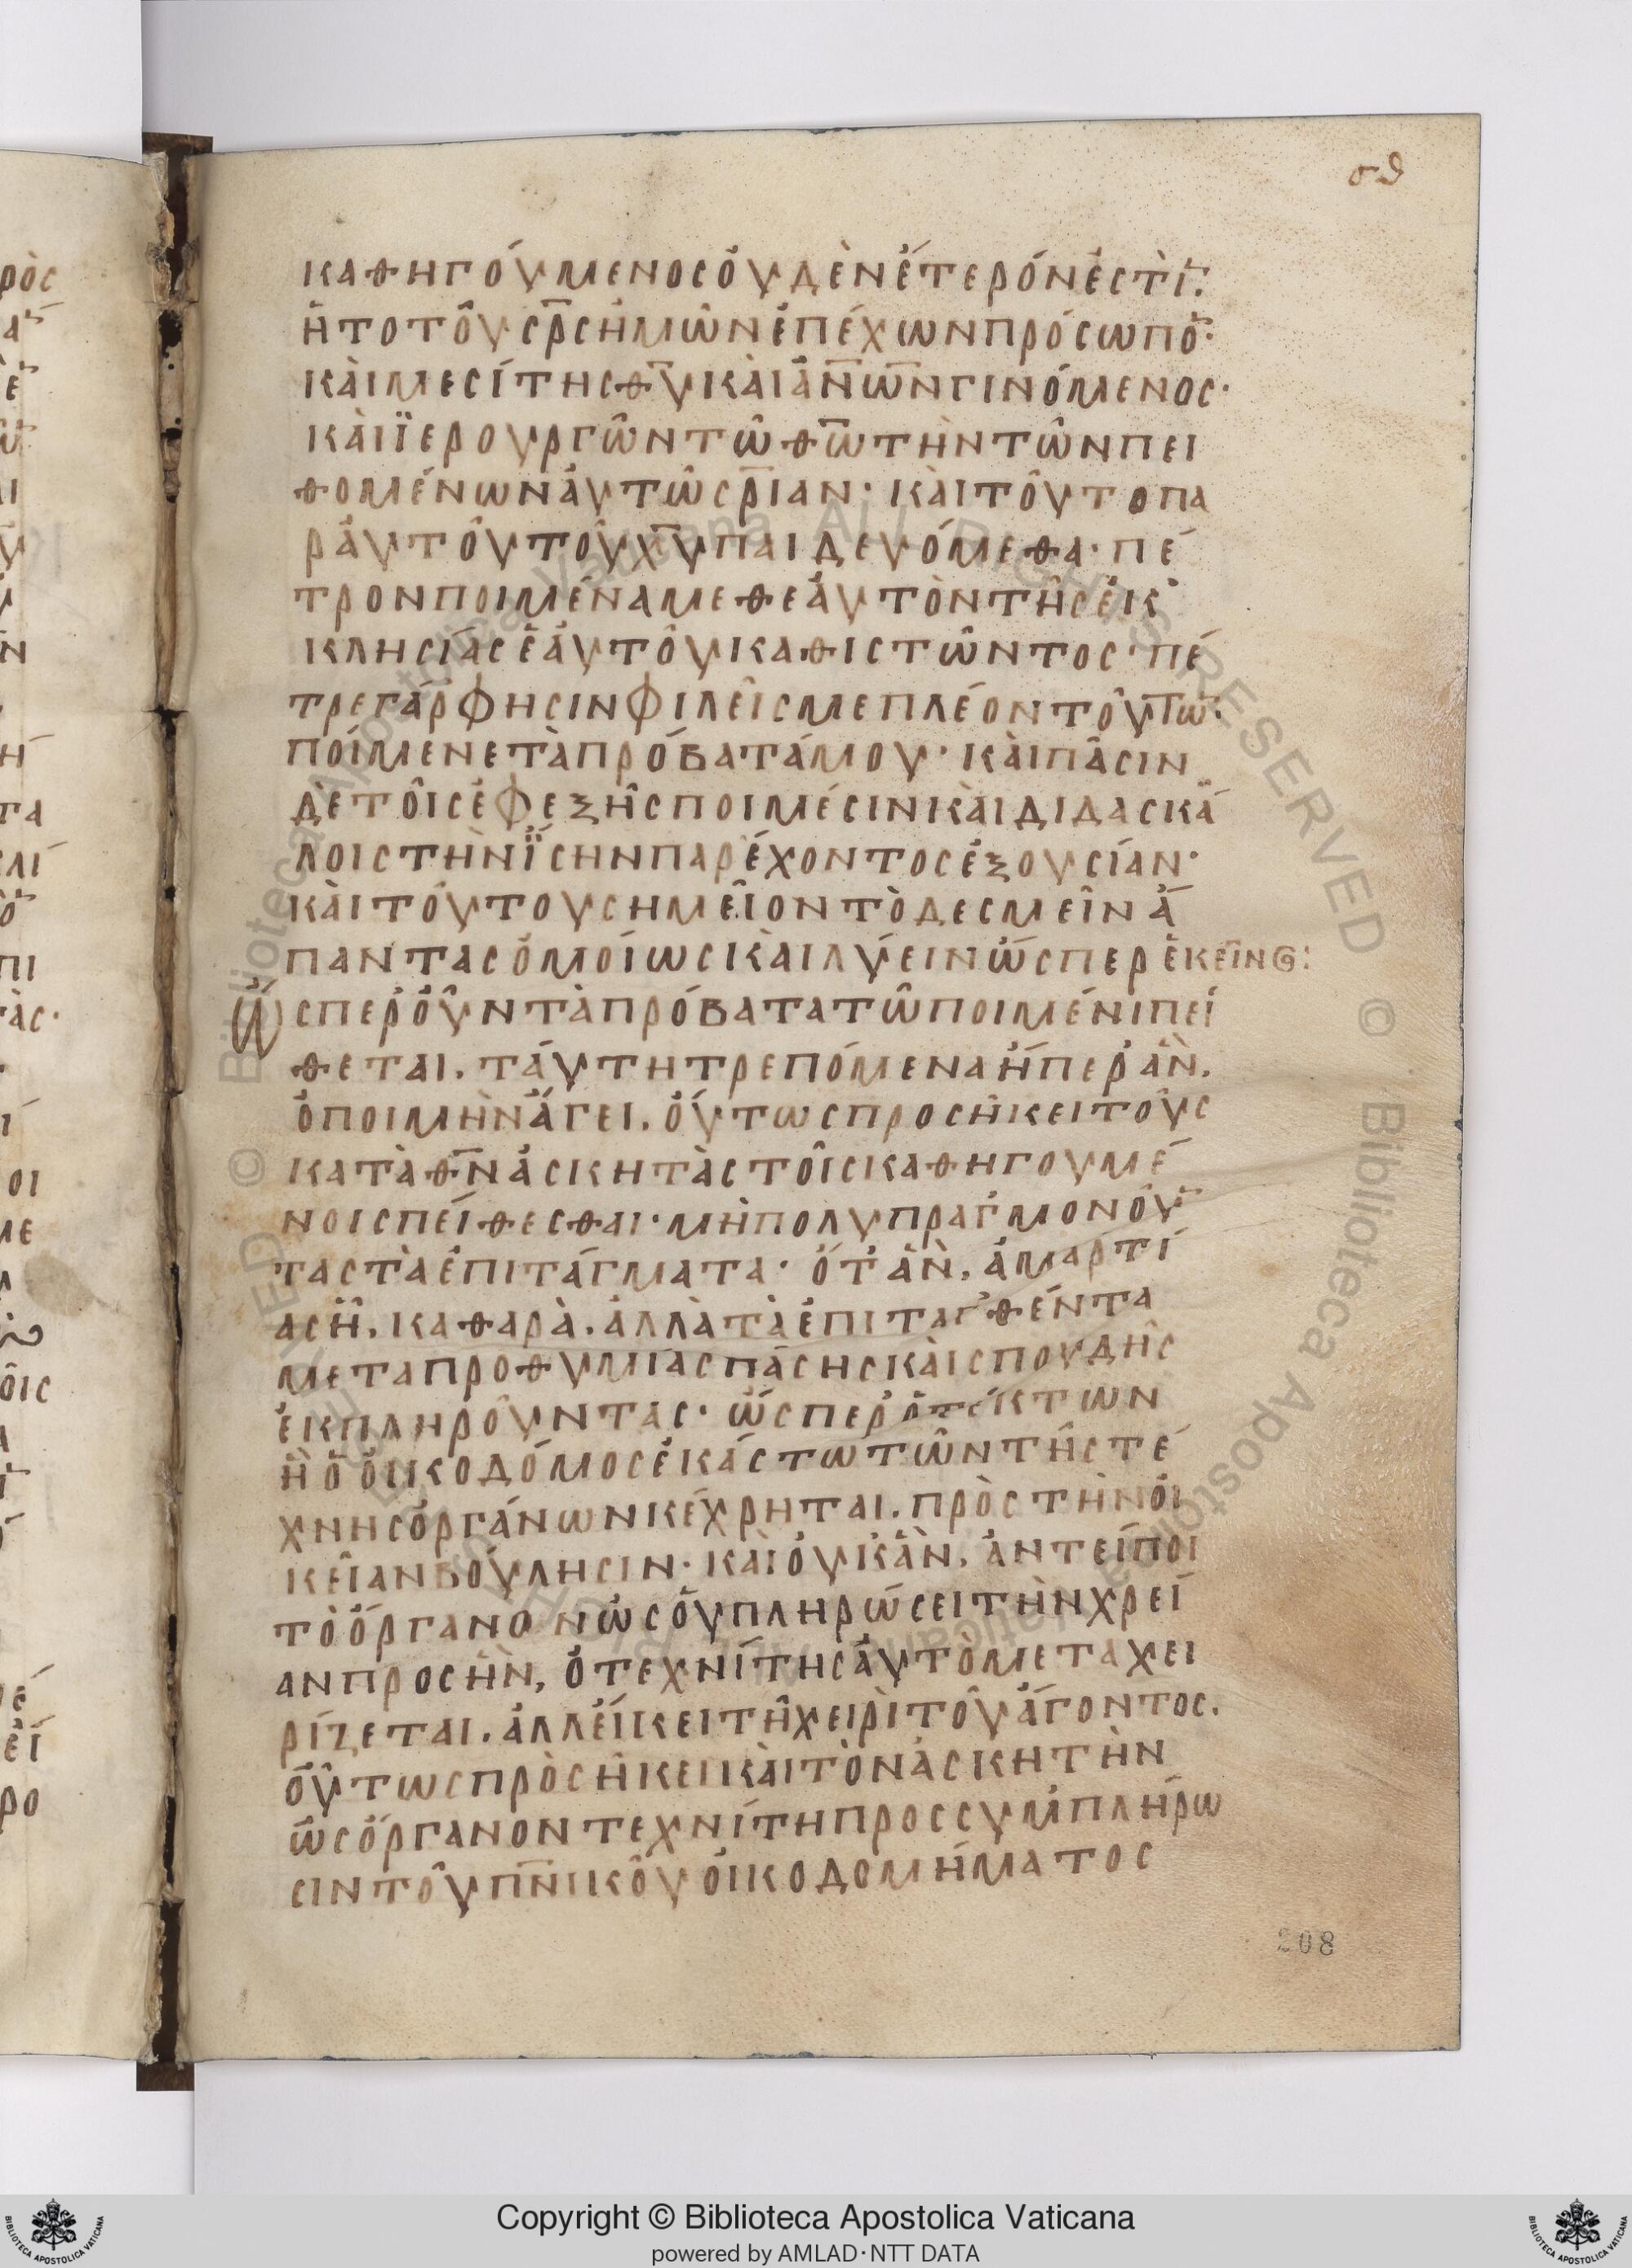 σδ
καθηγούμενος ὀυδὲν ἕτερόν ἐστὶ̅·
ἢ τὸ τοῦ σ̅ρ̅σ ἡμῶν ἐπέχων πρόσωπο̅·
κὰι μεσίτης θ̅υ̅ κὰι ἀ̅ν̅ω̅ν̅ γινόμενος·
κὰι ϊερουργῶν τῶ θ̅ω̅ τὴν τῶν πει
θομένων ἀυτῶ σ̅ρ̅ιαν· κὰι τοῦτο πα
ρ ἀυτοῦ τοῦ χ̅υ̅ παιδευόμεθα· πέ
τρον ποιμένα μεθ ἑαυτὸν τῆς ἐκ
κλησίας ἑαυτοῦ καθιστῶντος· πέ
τρε γάρ φησιν φιλεῖς με πλέον τούτω̅·
ποίμενε τὰ πρόβατά μου· κὰι πᾶσιν
δὲ τοῖς ἐφεξῆς ποιμέσιν κὰι διδασκά
λοις τὴν ΐσην παρέχοντος ἐξουσίαν·
κὰι τούτου σημεῖον τὸ δεσμεῖν ἅ
παντας ὁμοίως κὰι λύειν ὥσπερ ἐκεῖνος:
Ὥσπερ ὀῦν τὰ πρόβατα τῶ ποιμένι πεί
θεται. τάυτη τρεπόμενα ἥπερ ἂν.
ὁ ποιμὴν ἄγει. ὅυτως προσῆκει τοῦς
κατὰ θ̅ν̅ ἀσκητὰς τοῖς καθηγουμέ
νοις πείθεσθαι· μὴ πολυπραγμονοῦ̅
τας τὰ ἐπιτάγματα· ὅτ ἂν. ἁμαρτί
ας ἦ. καθαρὰ. ἀλλὰ τὰ ἐπιταχθέντα
μετα προθυμίας πάσης κὰι σπουδῆς
ἐκπληροῦντας· ὥσπερ ὁ τέκτων
ἢ ὁ ὀικοδόμος ἑκάστω τῶν τῆς τέ
χνης ὀργάνων κέχρηται. πρὸς τὴν ὀι
κεῖαν βούλησιν· και ὀυκ ἂν. ἀντείποι
τὸ ὄργανον ὡς ὀυ πληρώσει τὴν χρεί
αν προσ ἣν, ὁ τεχνίτης ἀυτὸ μεταχει
ρίζεται. ἀλλ ἔικει τῆ χειρὶ τοῦ ἄγοντος.
ὅυτως πρὸσῆκει κὰι τὸν ἀσκητὴν
ὡς ὄργανον τεχνίτη προς συμπλήρω
σιν τοῦ π̅ν̅ικοῦ ὀικοδομήματος
208
ρὸς
τα
λί
πι
τὰς·
οι
με
οῖς
ρο
Copyright © Biblioteca Apostolica Vaticana
powered by AMLAD·NTT DATA